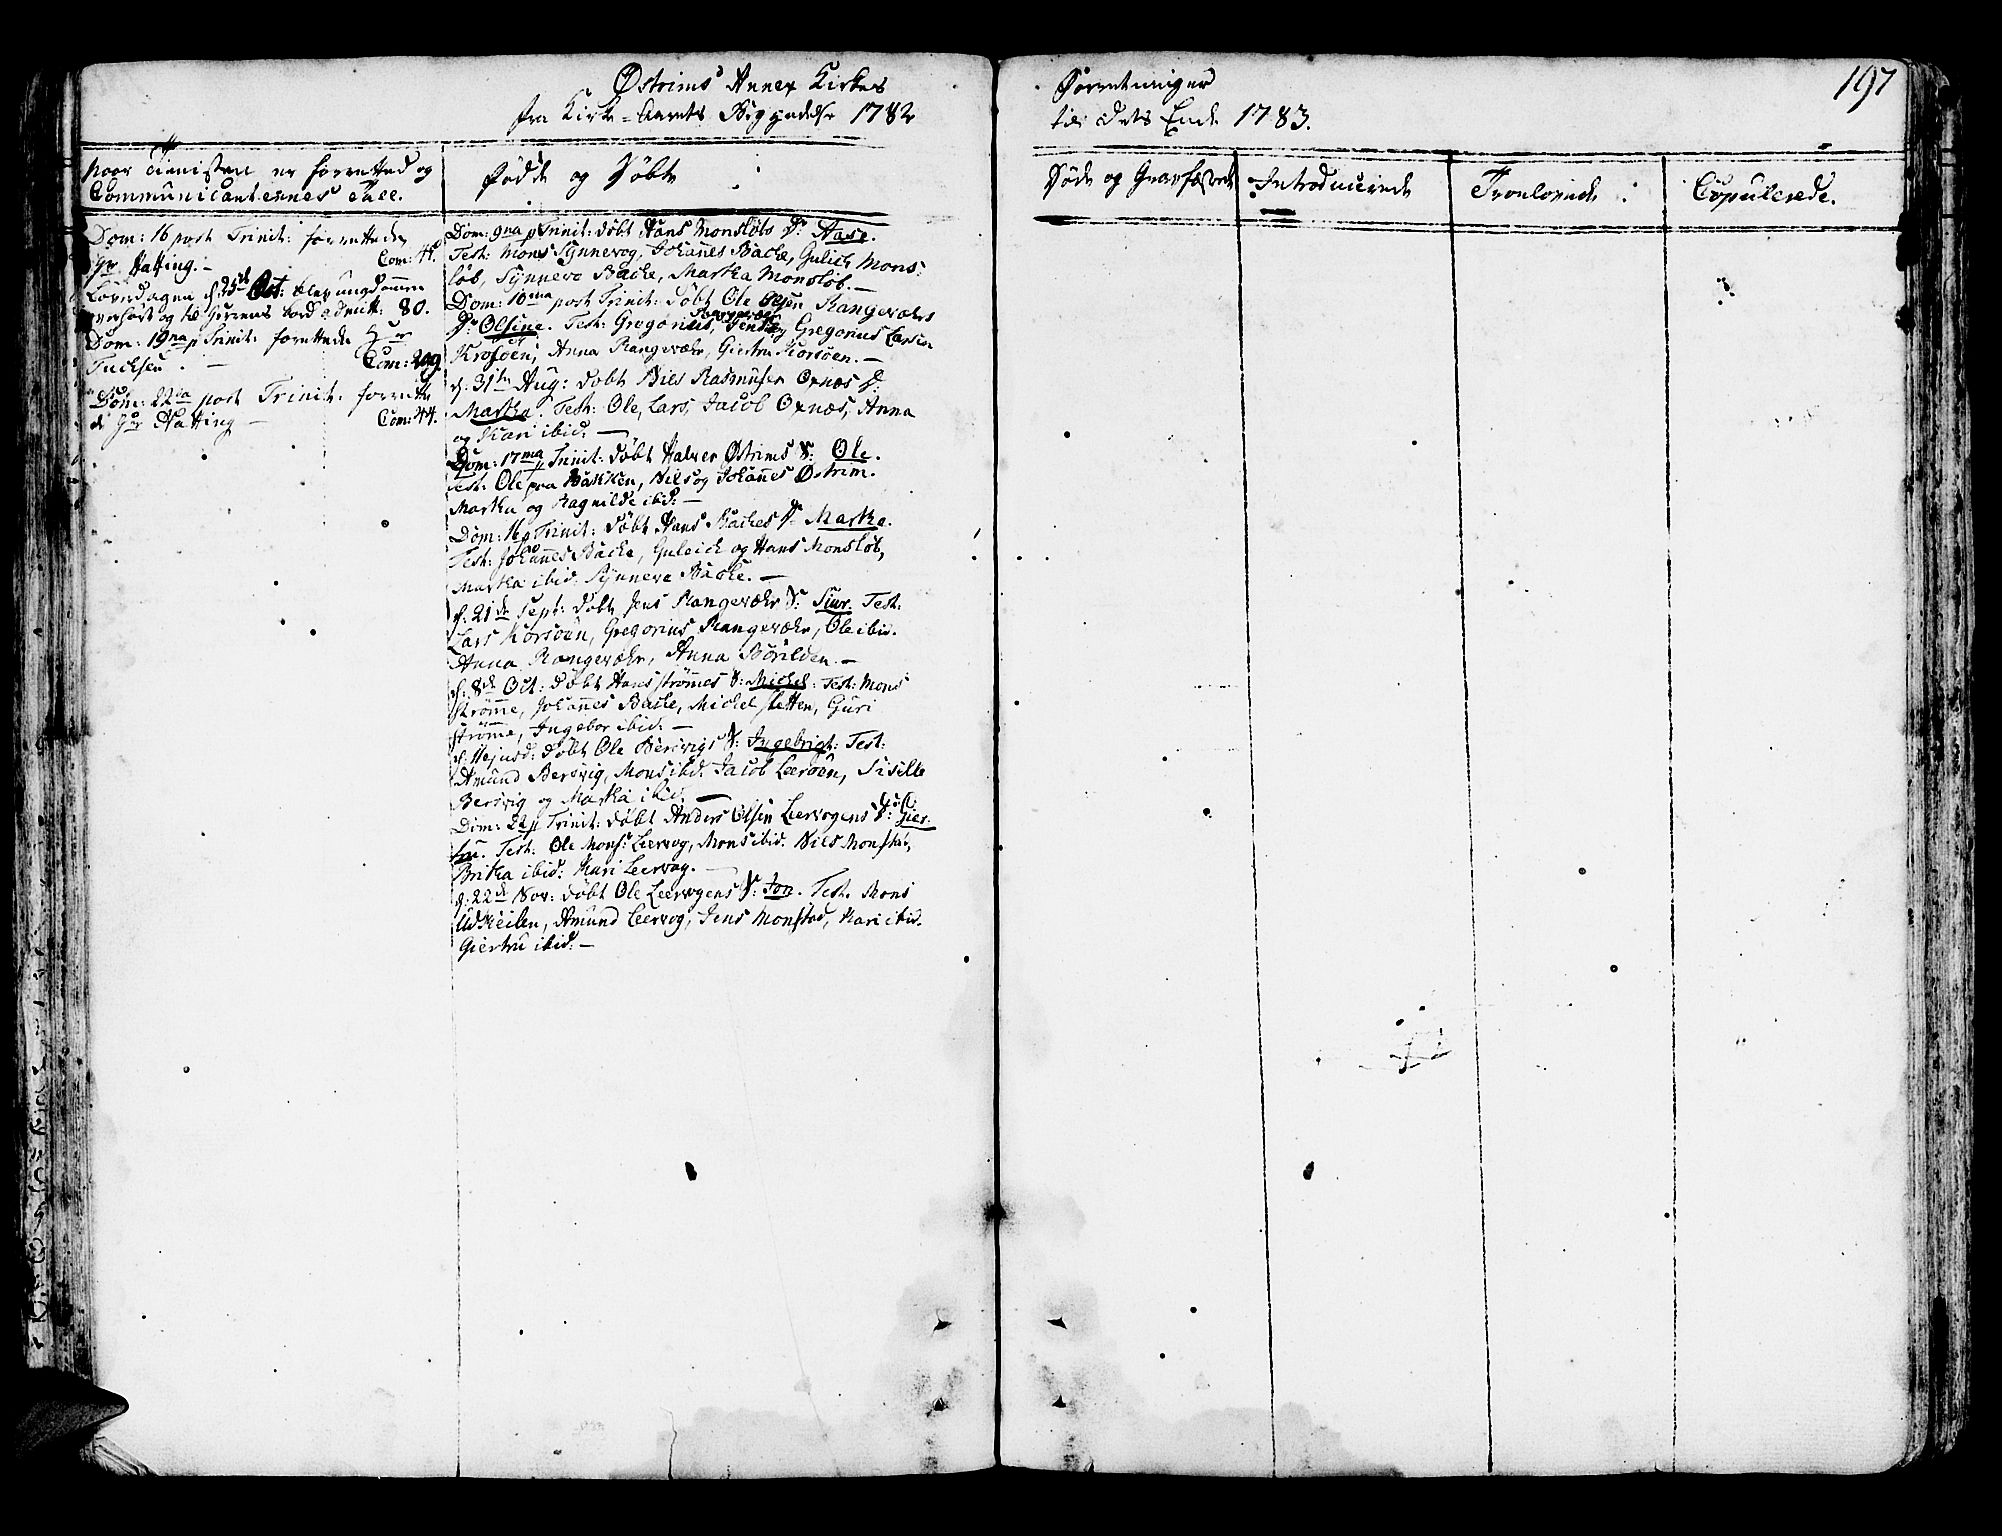 Østrims Annex Kirkes
fra Kirke-Aarets Begyndelse 1782
Forretninger
til dets Ende 1783.
197
Naar Tienisten er forretted og
Communicanternes Tall.
Fødde og Døbte
Døde og Graffæstede
Introducerede
Trolovede
Copulerede.
Dom: 16 post Trinit: forrettede
Hr Hatting.- Com: 41.
Løverdagen d: 25de Oct: blev ungdommen
overhørt og til Herrens bord 80.
Dom: 19na p Trinit: forrettede Hr
Tuchsen. - Com: 209
Dom: 22da post Trinit: forrette
de Hr Hatting - Com: 44.
Dom: 9na p Trinit: døbt Hans Monsløbs D: Aase.
Test: Mons Synnevog, Johannes Backe, Gulich Mons:
løb, Synneva Backe, Martha Monsløb.-
Dom: 10ma post Trinit: døbt Ole Olsen Rangevæhrs
D: Olsine. Test: Gregorius, Jens Rangevæhr og Gregorius Larsen
Krosøen, Anna Rangevæhr, Giertru Korsøen.-
d: 31te Aug: døbt Niels Rasmusen Oxnæs D:
Martha. Test: Ole, Lars, Jacob Oxnæs, Anna
og Kari ibid: -
Dom: 17ma p Trinit: døbt Halver Østrims S: Ole.
Test: Ole paa Bakken, Niels og Johannes Østrim.
Martha og Ragnilde ibid: -
Dom: 16 p Trinit: døbt Hans Backes D: Martha.
Test: Johannes Backe, Guleich og Hans Monsløb,
Martha ibid: Synneva Backe. -
d: 21de Sept: døbt Jens Rangevæhr S: Siur. Test:
Lars Korsøen, Gregorius Rangevæhr, Ole ibid.
Anna Rangevæhr, Anna Børilden. -
d: 8de Oct: døbt Hans Strømmes S: Michel: Test: Mons
Strømme, Johannes Backe, Michel Sletten, Guri
Strømme, Ingebor ibid: -
d: 11 ejusd: døbt Ole Bersvigs S: Ingebrigt: Test:
Amund Bersvig, Mons ibid: Jacob Leerøen, Sisille
Bersvig og Martha ibid. -
Dom: 22 p Trinit: døbt Anders Olsen Leervogens D: Gier:
tru. Test: Ole Mons: Leervog, Mons ibid: Niels Monstad,
Britha ibid: Kari Leervog. -
d: 22de Nov: døbt Ole Leervogens S: Jon. Test. Mons
Udkeilen, Amund Leervog, Jens Monstad, Kari ibid.
Giertru ibid: -